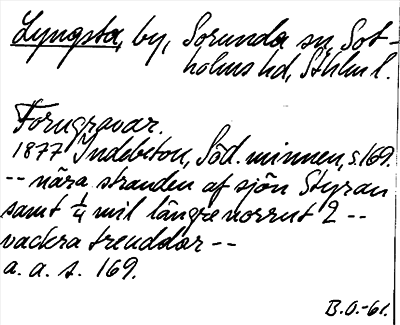 Lyngsta, by, Sorunda sn, Sot-
holms hd, Sthlm l.
Forngravar.
1877 Indebetou, Söd. minnen, s. 169.
-- nära stranden af sjön Styran
samt 1/4 mil längre norrut 2 --
vackra treuddar --
a. a. s. 169.
B.O.-61.